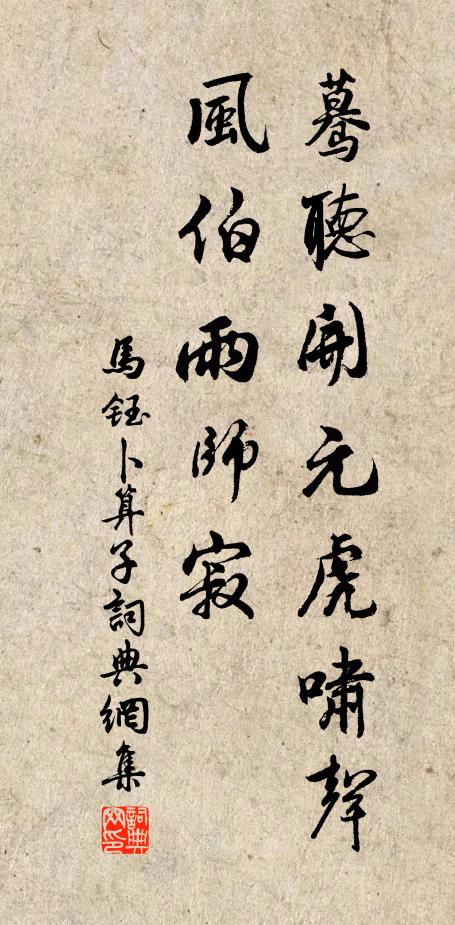 驀聽開元虎嘯聲
風伯雨師寂
馬鈺卜算子詞典網集
詞典
网印